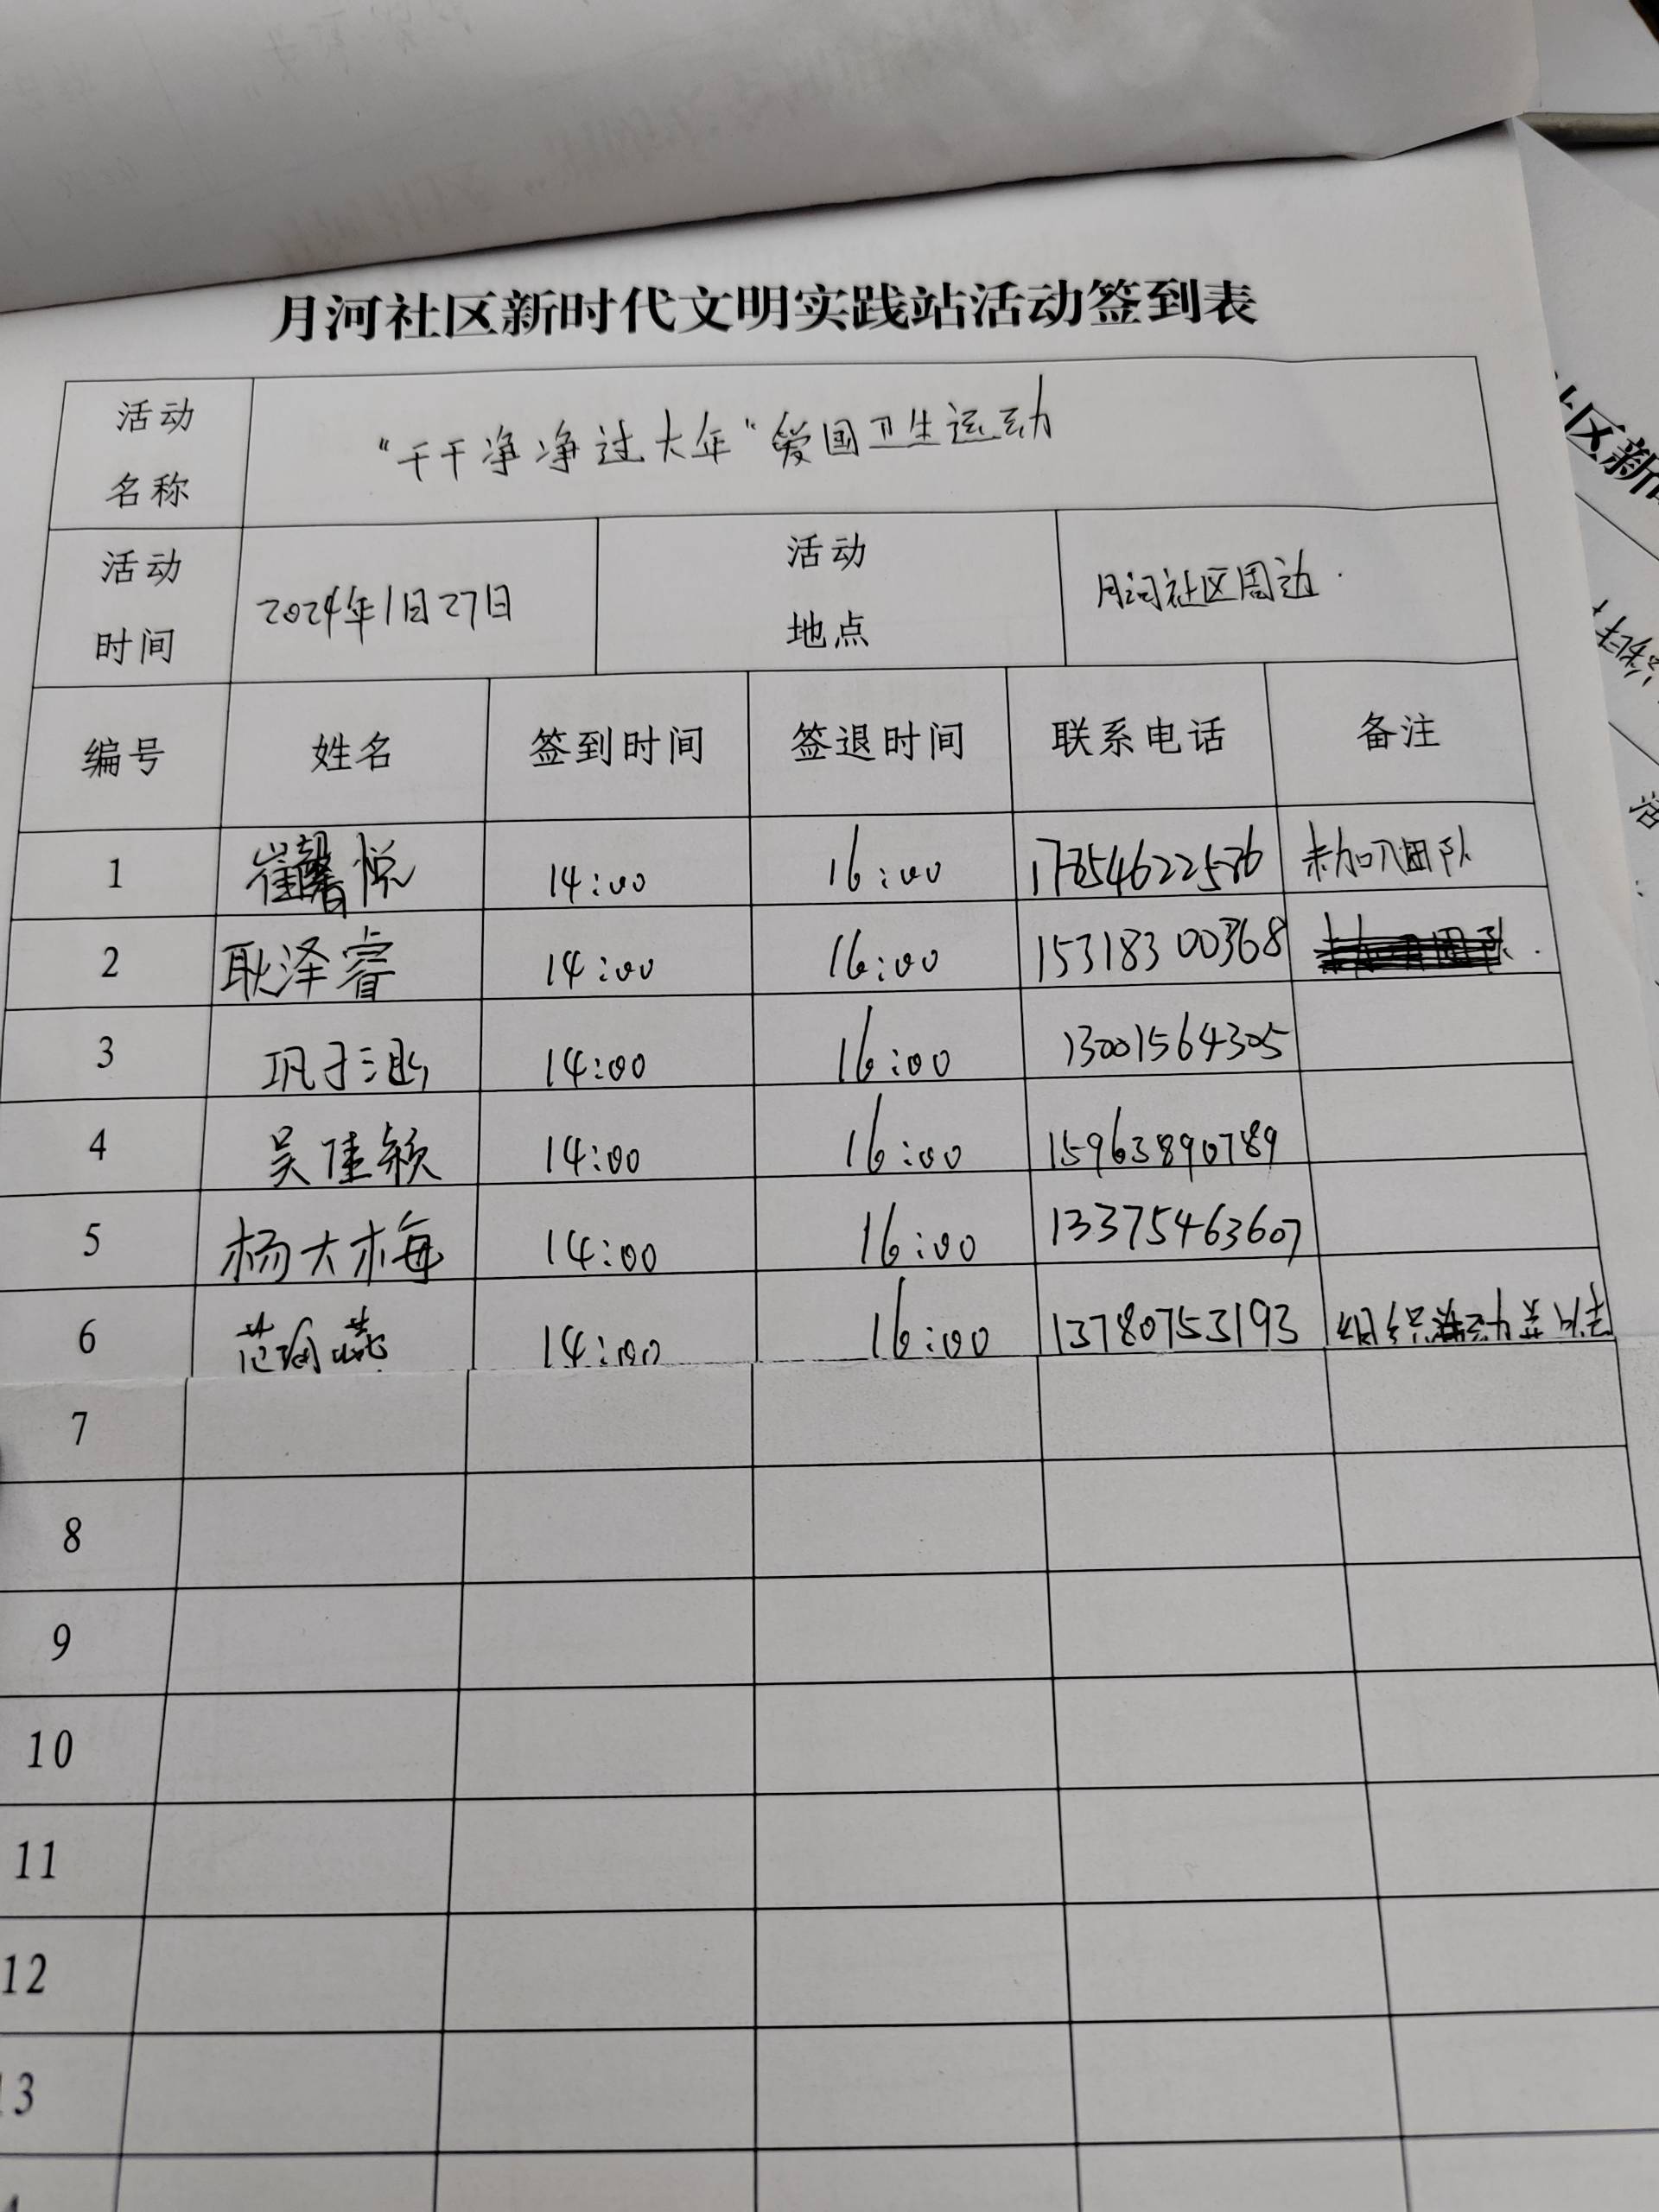 月河社区新时代文明实践站活动签到表
活动名称 "干干净净过大年"爱国卫生运动
活动时间 2024年1月27日 活动地点 月河社区周边
编号 姓名 签到时间 签退时间 联系电话 备注
1 崔馨悦 14:00 16:00 未加入团队
2 耿泽睿 14:00 16:00 15318300368
3 巩子 14:00 16:00 13001564305
4 吴佳颖 14:00 16:00 15963890789
5 杨大梅 14:00 16:00 13375463607
6 范 14:00 16:00 13780753193
7
8
9
10
11
12
13
区新
活